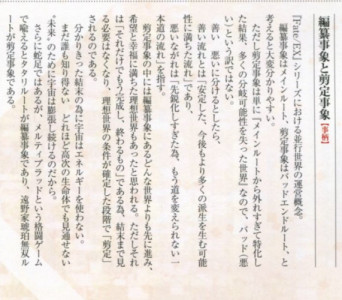 編纂事象と剪定事象【事柄】
『Fate/EX』シリーズにおける並行世界の運営概念。
編纂事象はメインルート、剪定事象はバッドエンドルート、と
考えると大変分かりやすい。
ただし剪定事象は単に『メインルートから外れすぎて特化し
た結果、多くの分岐可能性を失った世界』なので、バッド（悪
い）という訳ではない。
善い、悪いに分けるとしたら、
善い流れとは「安定した、今後もより多くの派生を生む可能
性に満ちた流れ」であり、
悪い流れとは「先鋭化しすぎた為、もう道を変えられない一
本道の流れ」を指す。
剪定事象の中には編纂事象にあるどんな世界よりも先に進み、
希望と幸福に満ちた理想世界もあったと思われる。ただしそれ
は「それだけでもう完成し、終わるもの」である為、結末まで見
る必要はなくなり、理想世界の条件が確定した段階で「剪定」
されるのである。
分かりきった結末の為に宇宙はエネルギーを使わない。
まだ誰も知り得ない どれほど高次の生命体でも見通せない
"未来"のために宇宙は膨張し続けるのだから。
さらに蛇足ではあるが、メルティブラッドという格闘ゲーム
で喩えるとタタリルートが編纂事象であり、遠野家琥珀無双ル
ートが剪定事象である。